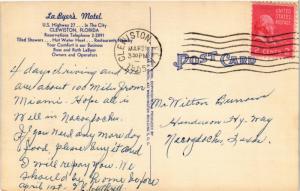 La Byer's Motel
U.S. Highway 27 . . . In the City
CLEWISTON, FLORIDA
Reservations Telephone 2-2891
Tiled Showers . . Hot Water Heat . . Restaurants Nearby
Your Comfort is our Business
Rose and Ruth LaByer
Owners and Operators
CLEWISTON, FLA.
MAR
330PM
POST CARD
UNITED STATES
POSTAGE
2 CENTS 2
4 days driving and we
are about 100 miles from
Miami. Hope all is
Well in Nacogdoches.
If you need any more dog
food, please buy it and
I will repay you. We
should be home before
april 1st.
Mr. Wilton Burrows
Henderson Hy. Way
Nacogdoches,
Texas.